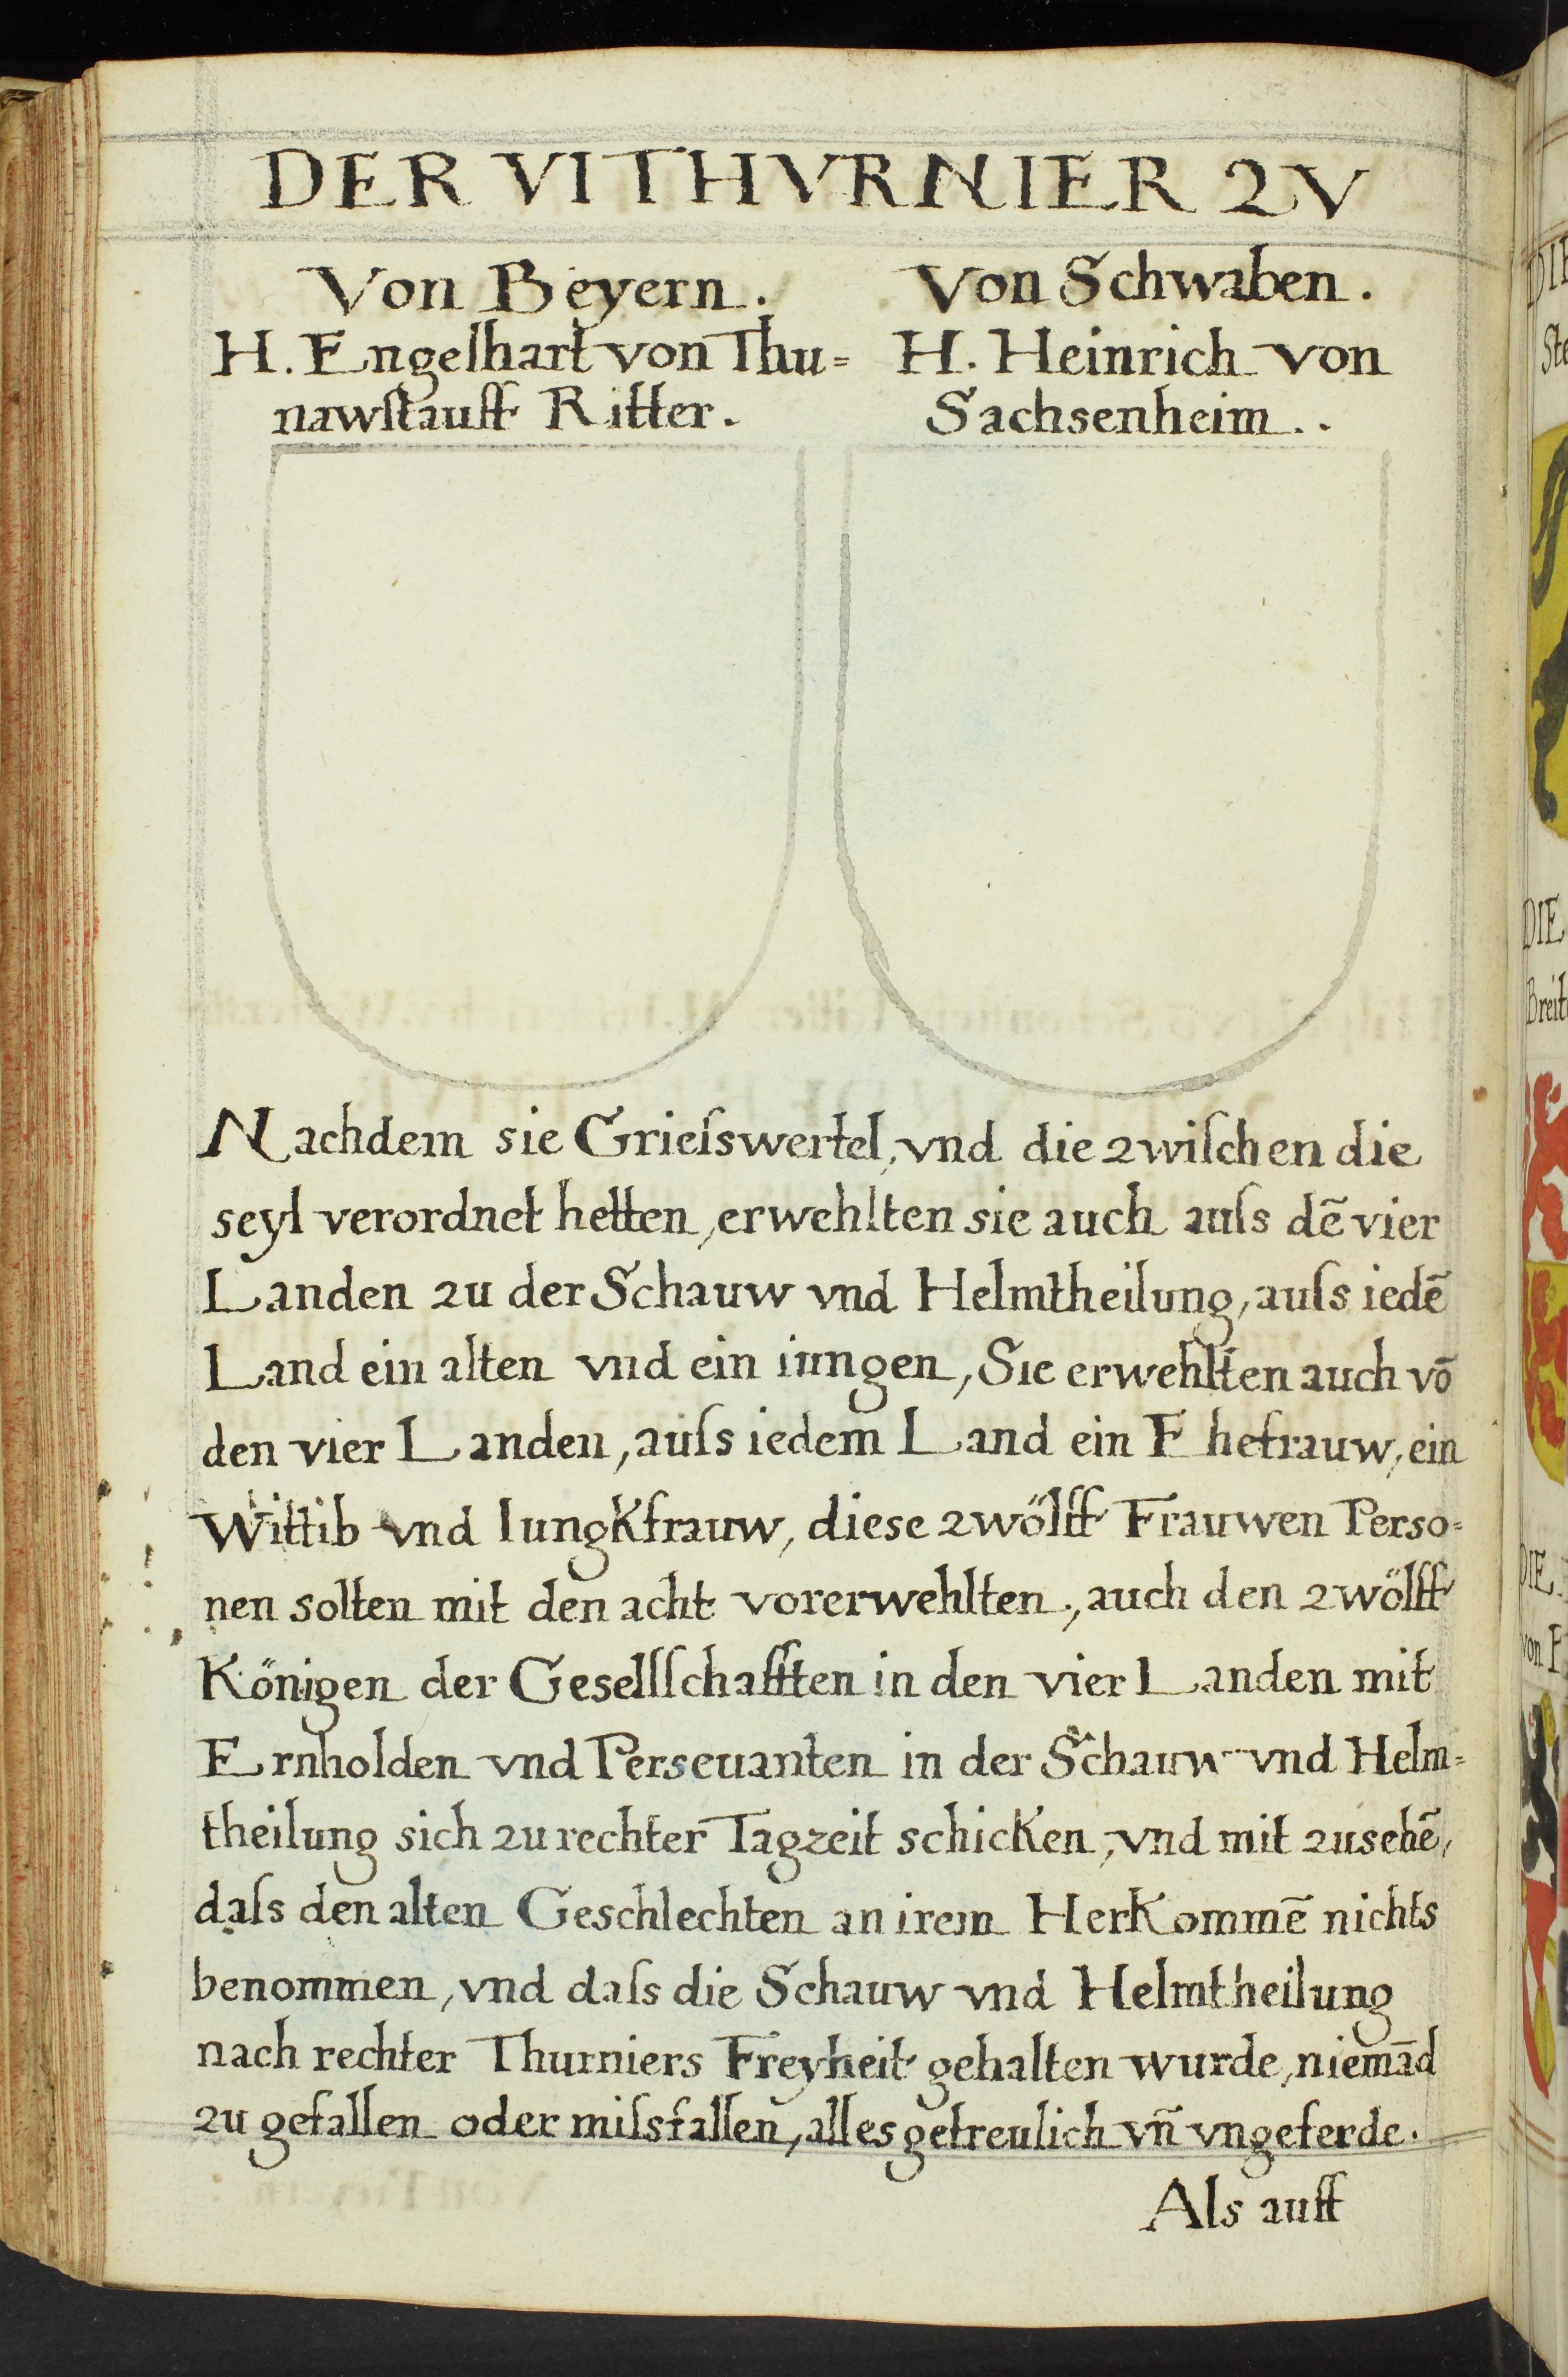 DER VI THVRNIER ZV
Von Beyern.
H. Engelhart von Thu=
nawstauff Ritter.
Von Schwaben.
H. Heinrich von
Sachsenheim..
Nachdem sie Grieſswertel, vnd die zwiſchen die
seyl verordnet hetten, erwehlten sie auch auſs dē vier
Landen zu der Schauw vnd Helmtheilung, auſs iedē
Land ein alten vnd ein iungen, Sie erwehlten auch vō
den vier Landen, auſs iedem Land ein Ehefrauw, ein
Wittib vnd Iungkfrauw, diese zwölff Frauwen Perso=
nen solten mit den acht vorerwehlten, auch den zwölff
Königen der Gesellſchafften in den vier Landen mit
Ernholden vnd Perseuanten in der Schauw vnd Helm=
theilung sich zu rechter Tagzeit schicken, vnd mit zusehē,
daſs den alten Geschlechten an irem Herkommē nichts
benommen, vnd daſs die Schauw vnd Helmtheilung
nach rechter Thurniers Freyheit gehalten wurde, niemād
zu gefallen oder miſsfallen, alles getreulich vn̄ vngeferde.
Als auff
DIE
Breit
DIE
von F